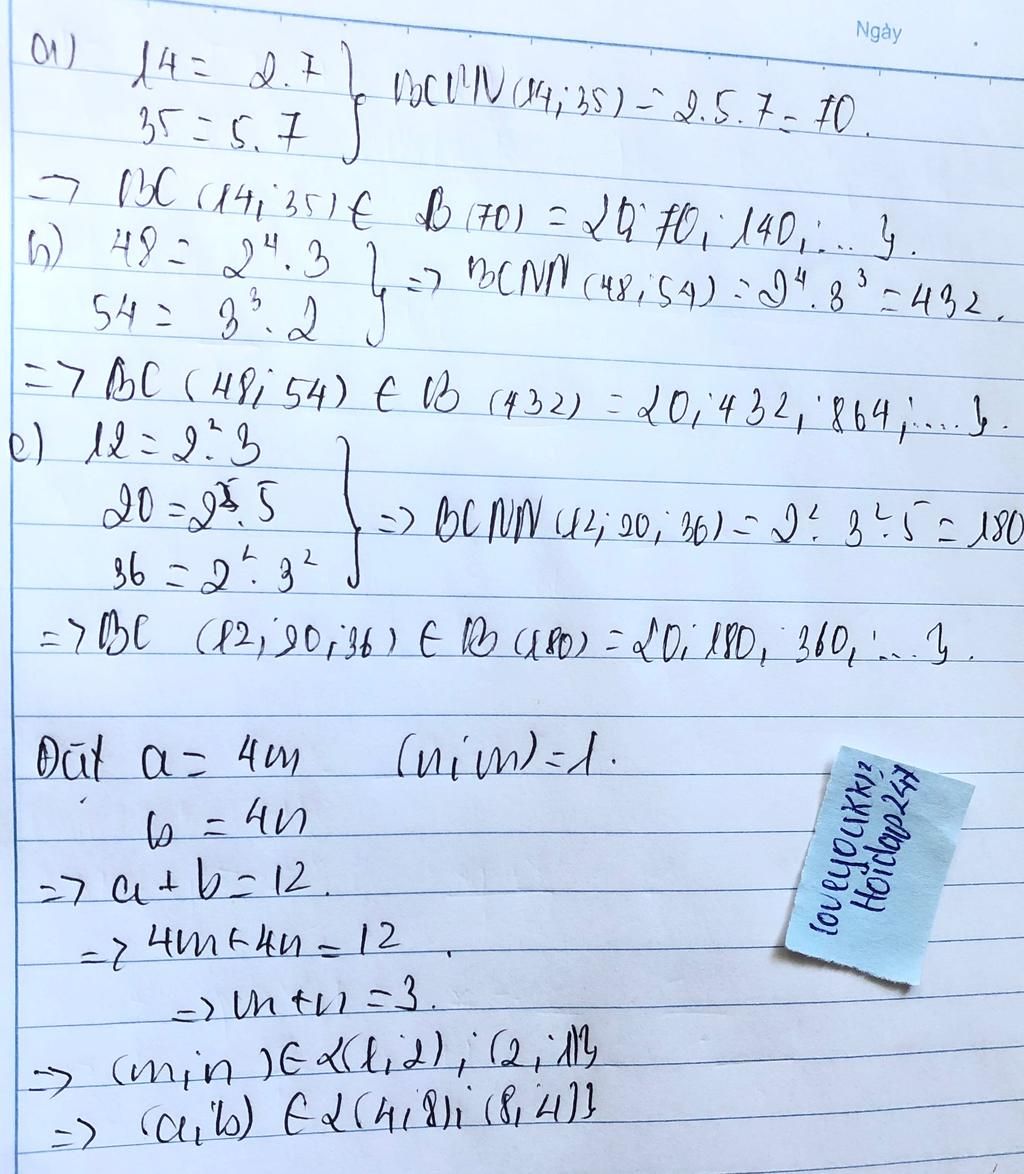 Ngày
a) 14 = 2.7
35 = 5.7
BCNN (14; 35) = 2.5.7 = 70.
=> BC (14; 35) ∈ B (70) = {0; 70; 140; ... }.
b) 48 = 2⁴.3
54 = 3³.2
=> BCNN (48; 54) = 2⁴.3³ = 432.
=> BC (48; 54) ∈ B (432) = {0; 432; 864; .... }.
c) 12 = 2².3
20 = 2².5
36 = 2².3²
=> BCNN (12; 20; 36) = 2².3².5 = 180
=> BC (12; 20; 36) ∈ B (180) = {0; 180; 360; ... }.
Đặt a = 4m (n; m) = 1.
b = 4n
=> a + b = 12.
=> 4m + 4n = 12.
=> m + n = 3.
=> (m; n) ∈ {(1; 2); (2; 1)}
=> (a; b) ∈ {(4; 8); (8; 4)}
loveyoukk12
Hoidap247